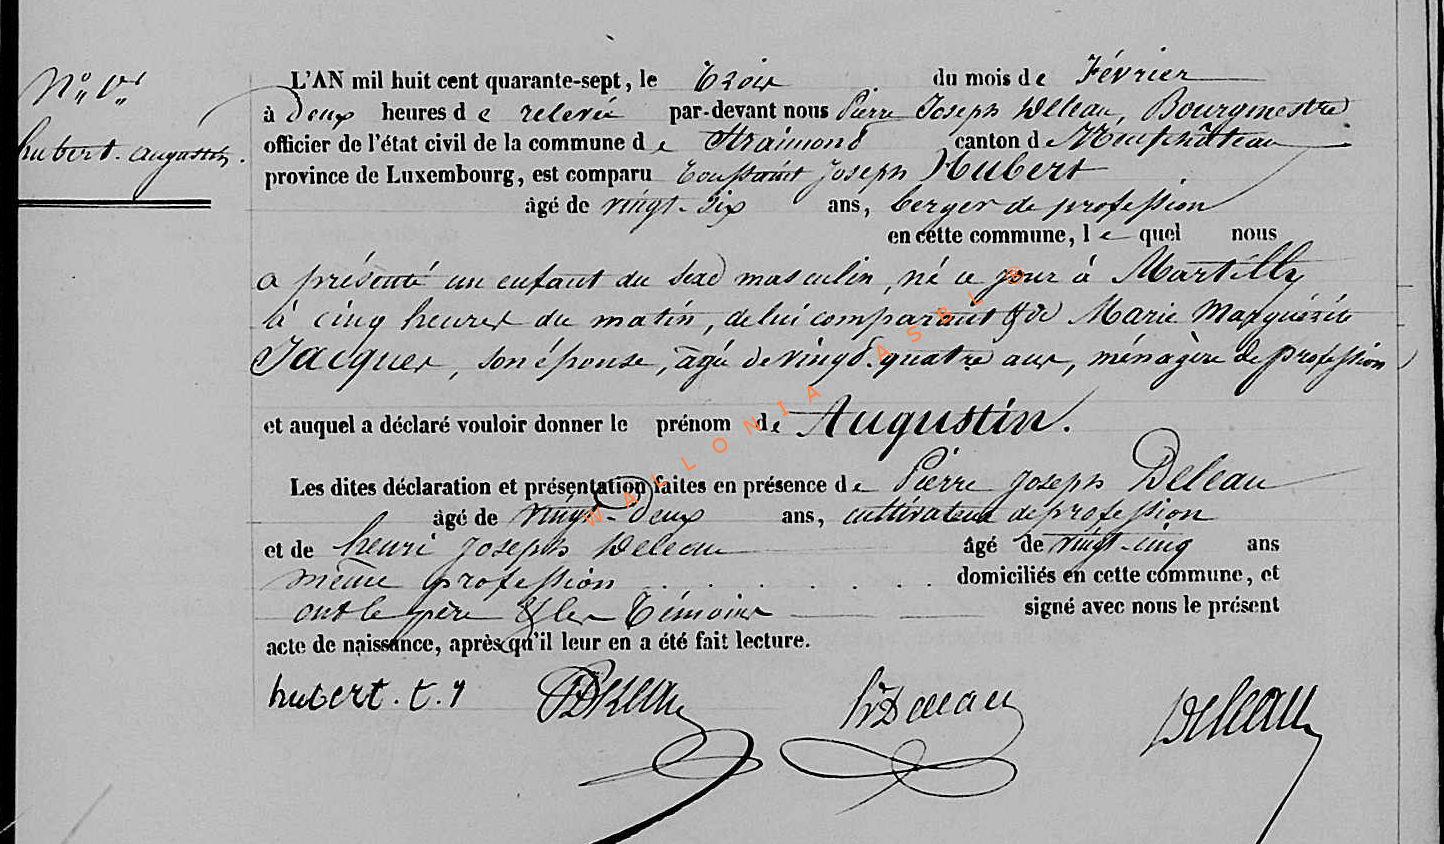 N° 1er
hubert. augustin.
L'AN mil huit cent quarante-sept, le Trois du mois de Février
à Deux heures de relevée par-devant nous Pierre Joseph Deleau, Bourgmestre
officier de l'état civil de la commune de Straimont canton de Neufchâteau
province de Luxembourg, est comparu Toussaint Joseph Hubert
âgé de vingt-six ans, berger de profession
en cette commune, lequel nous
a présenté un enfant du sexe masculin, né ce jour à Martilly
à cinq heures du matin, de lui comparant & de Marie Marguérite
Jacques, son épouse, âgée de vingt-quatre ans, ménagère de profession
et auquel a déclaré vouloir donner le prénom de Augustin.
Les dites déclaration et présentation faites en présence de Pierre Joseph Deleau
âgé de vingt-deux ans, cultivateur de profession
et de henri Joseph Deleau âgé de vingt-cinq ans
même profession domiciliés en cette commune, et
ont le père & les Témoins signé avec nous le présent
acte de naissance, après qu'il leur en a été fait lecture.
hubert. t. j Deleau hDeleau Deleau
WALLONIA ASBL